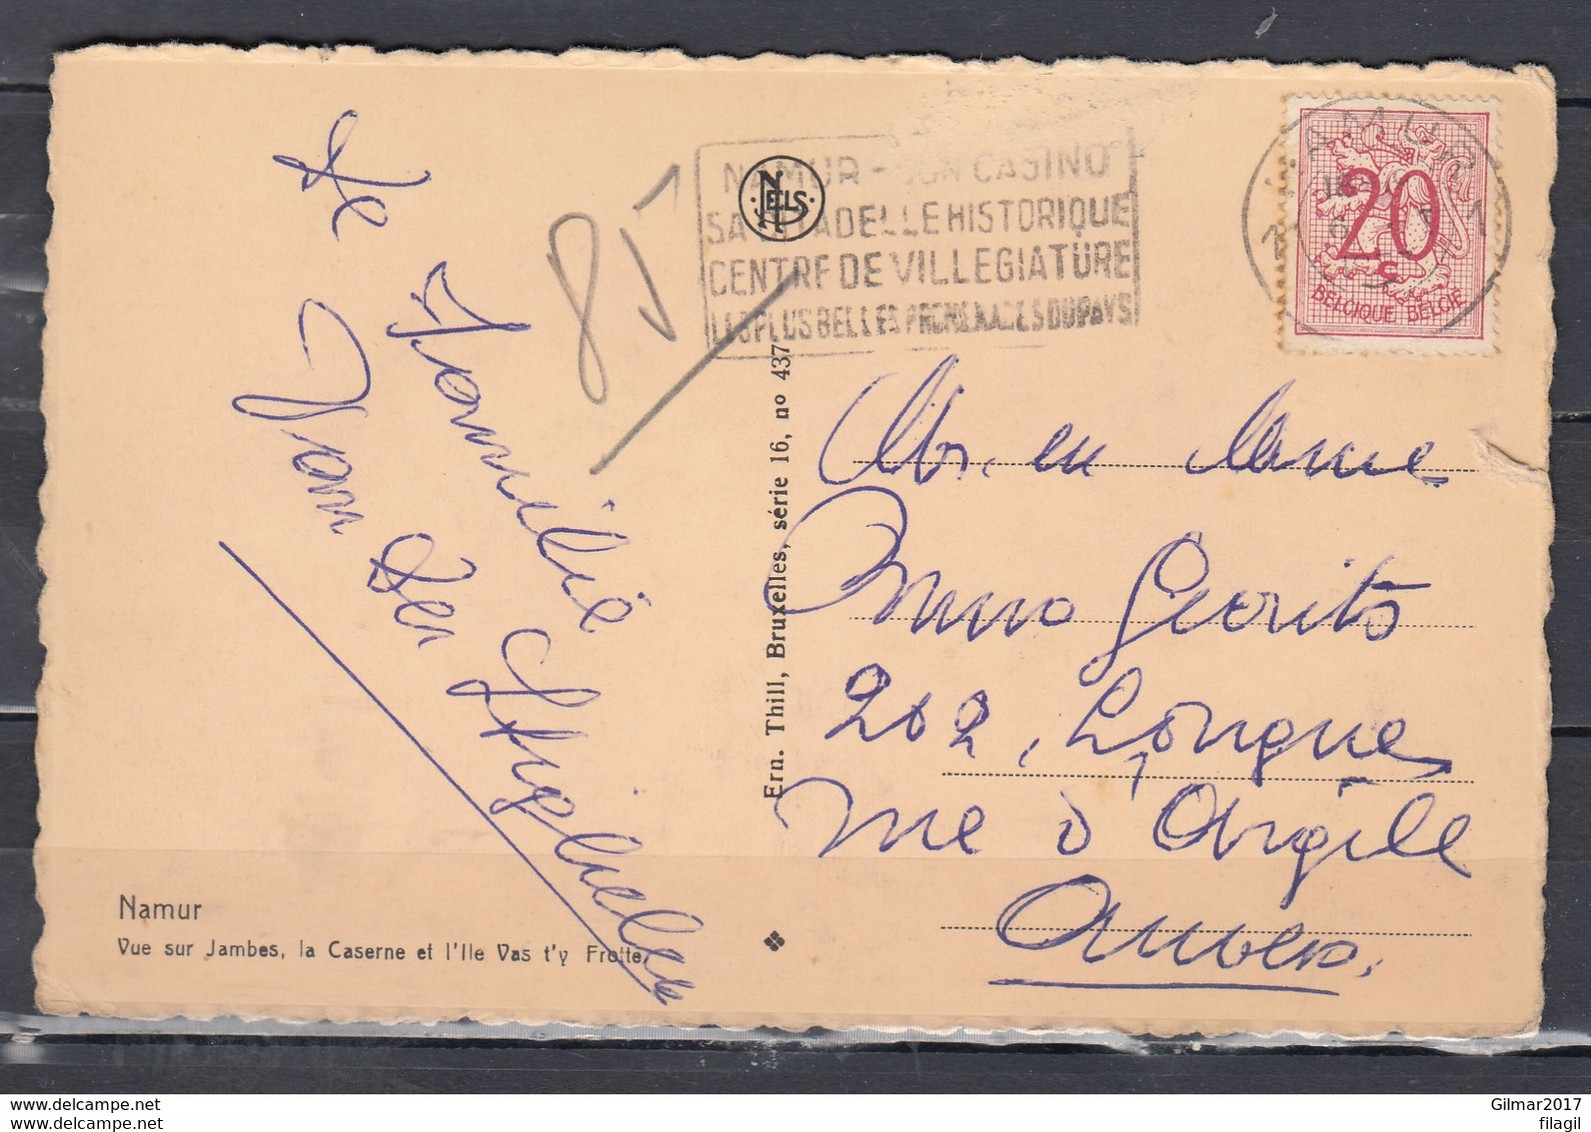 De
Familie
Van Der Stighelen
NAMUR - SON CASINO
SA CITADELLE HISTORIQUE
CENTRE DE VILLEGIATURE
LES PLUS BELLES PROMENADES DU PAYS
NELS
NAMUR
20
BELGIQUE BELGIË
85
Ern. Thill, Bruxelles, série 16, no 437
Mr. en Mme
Bruno Gerrits
202, Longue
rue d'Argile
Anvers.
Namur
Vue sur Jambes, la Caserne et l'Ile Vas t'y Frotte
www.delcampe.net
Gilmar2017
filagil